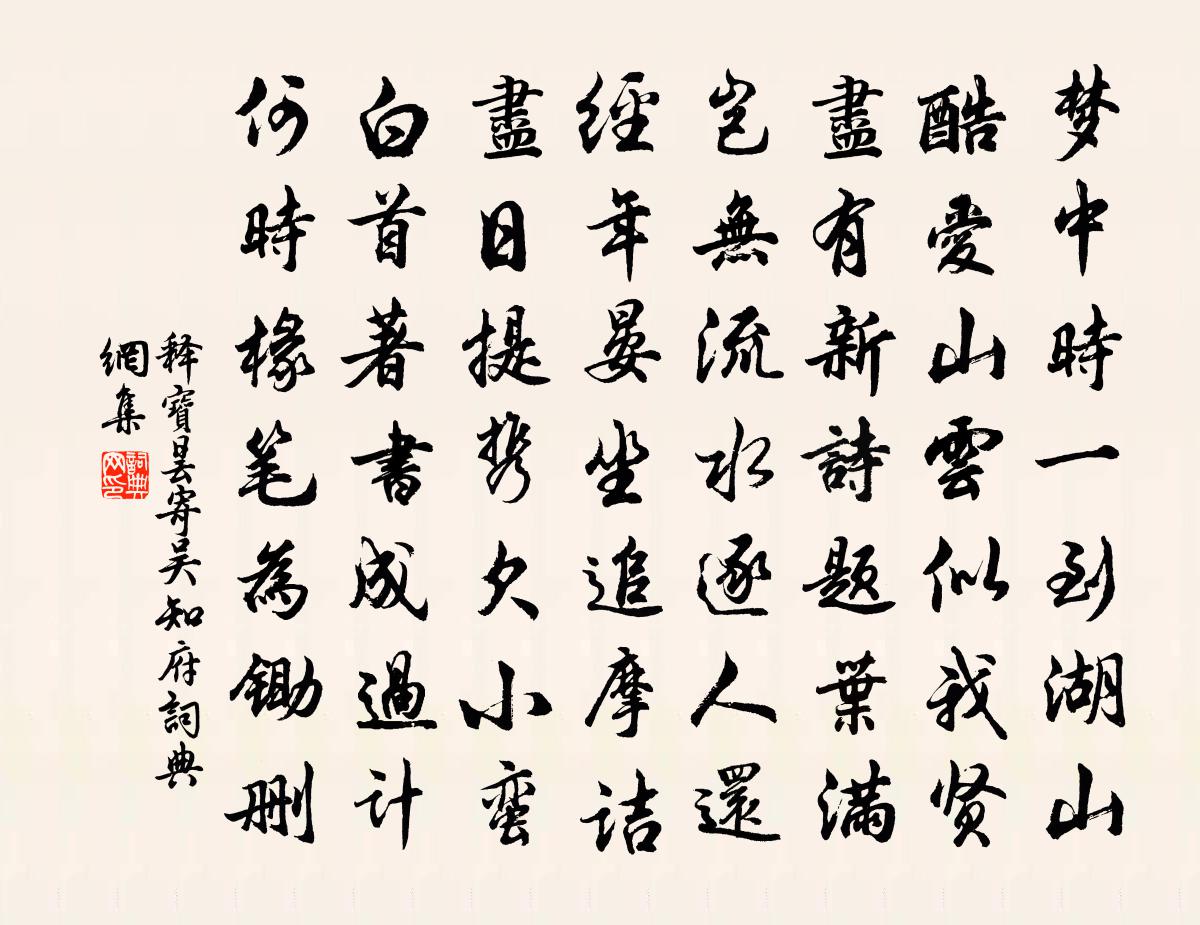 梦中時一到湖山
酷愛山雲似我贤
盡有新詩题葉满
岂無流水逐人還
經年晏坐追摩诘
盡日提携欠小蛮
白首著書成過计
何時椽笔為鋤删
释寶昙寄吴知府詞典
網集
詞典
网印